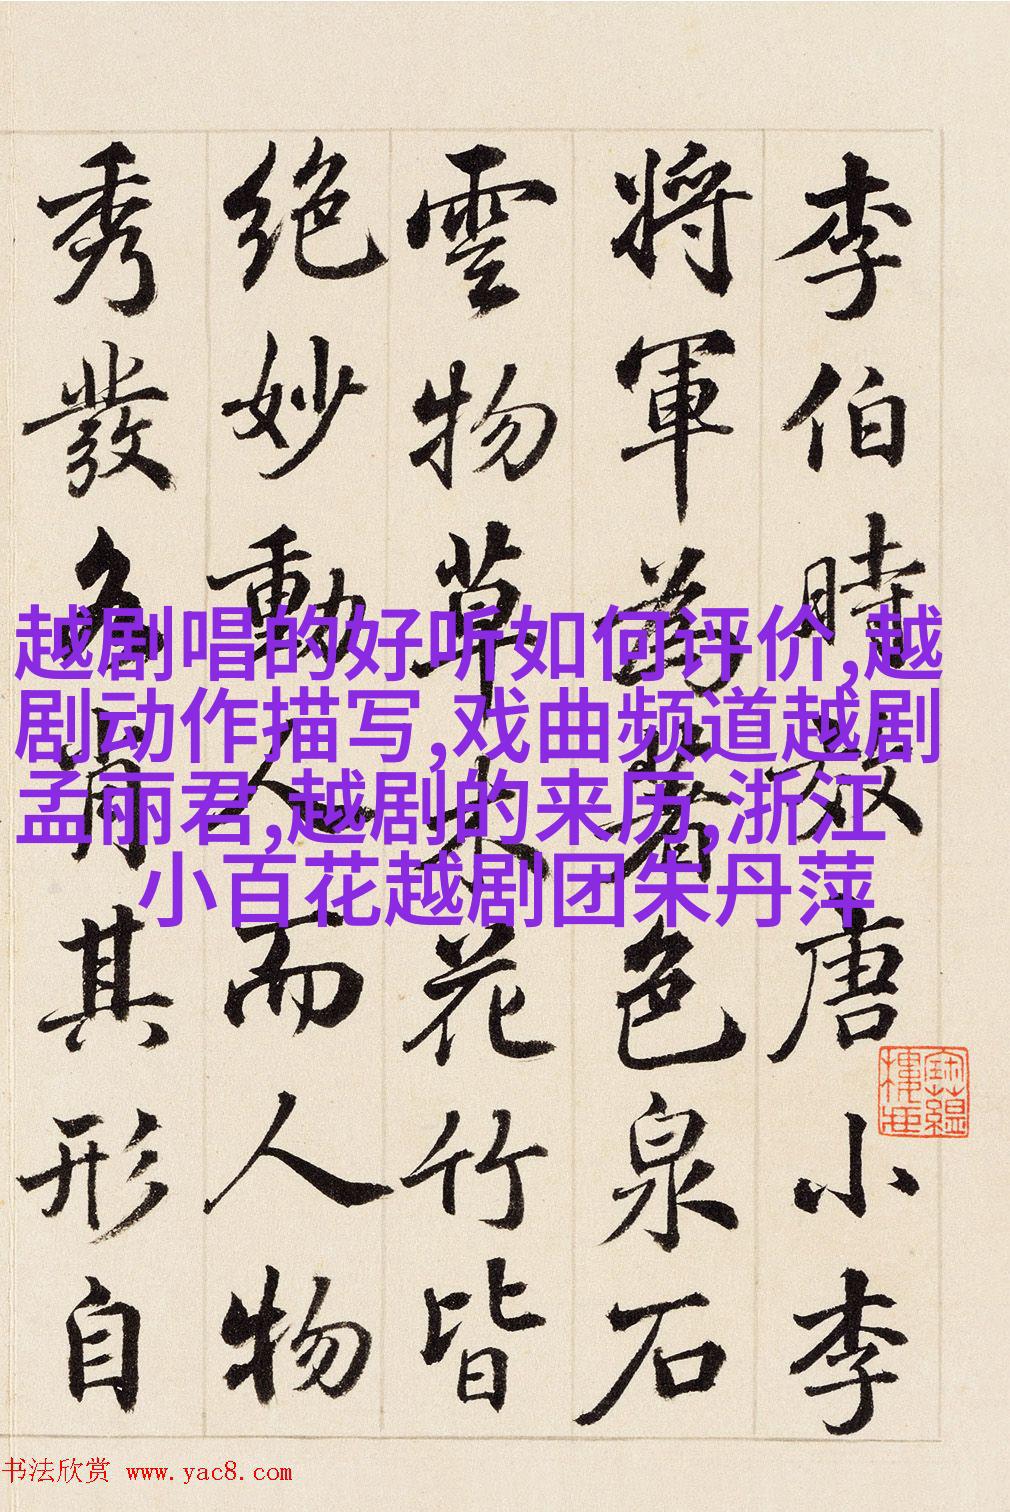 李伯時效唐小李
將軍為著色泉石
雲物草木花竹皆
絕妙動人而人物
秀發各肖其形自
越剧唱的好听如何评价,越
剧动作描写,戏曲频道越剧
孟丽君,越剧的来历,浙江
小百花越剧团朱丹萍
书法欣赏 www.yac8.com